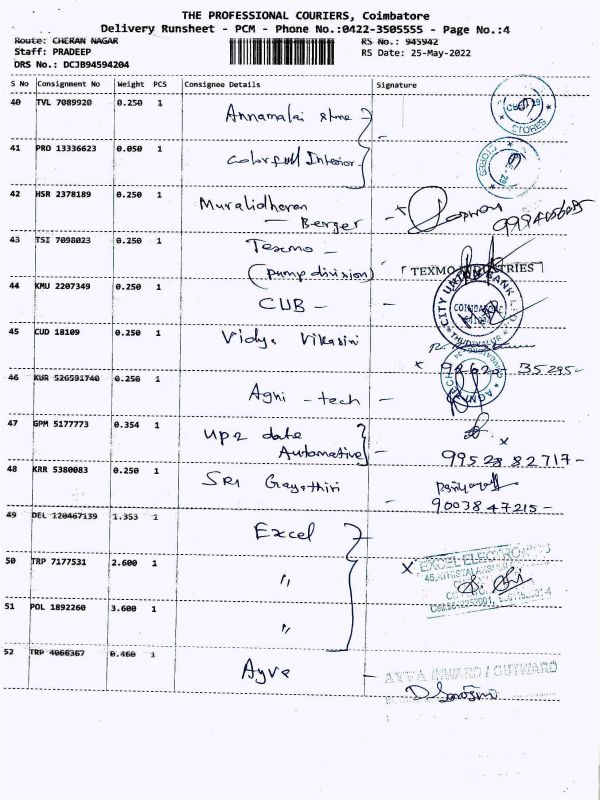 THE PROFESSIONAL COURIERS, Coimbatore
Delivery Runsheet - PCM - Phone No.:0422-3505555 - Page No.:4
Route: CHERAN NAGAR RS No.: 945942
Staff: PRADEEP RS Date: 25-May-2022
DRS No.: DCJB94594204
S No Consignment No Weight PCS Consignee Details Signature
40 TVL 7089920 0.250 1 Annamalai
STORES
41 PRO 13336623 0.050 1 Colorfull Interior
STORES
42 HSR 2378189 0.250 1 Muralidharan
Berger
43 TSI 7098023 0.250 1 Texmo -
(pump division) TEXMO INDUSTRIES
44 KMU 2207349 0.250 1 CUB - CITY UNION BANK
COIMBATORE
45 CUD 18109 0.250 1 Vidya Vikasini
35295-
46 KUR 526591740 0.250 1 Agni - tech -
47 GPM 5177773 0.354 1 up 2 date
Automative
99528 82717-
48 KRR 5380083 0.250 1 SRI Gayathiri -
90038 47215-
49 DEL 120467139 1.353 1 Excel
50 TRP 7177531 2.600 1 "
EXCEL ELECTRONICS
51 POL 1892260 3.600 1 "
52 TRP 4066367 0.460 1 Ayva - AYVA INWARD / OUTWARD